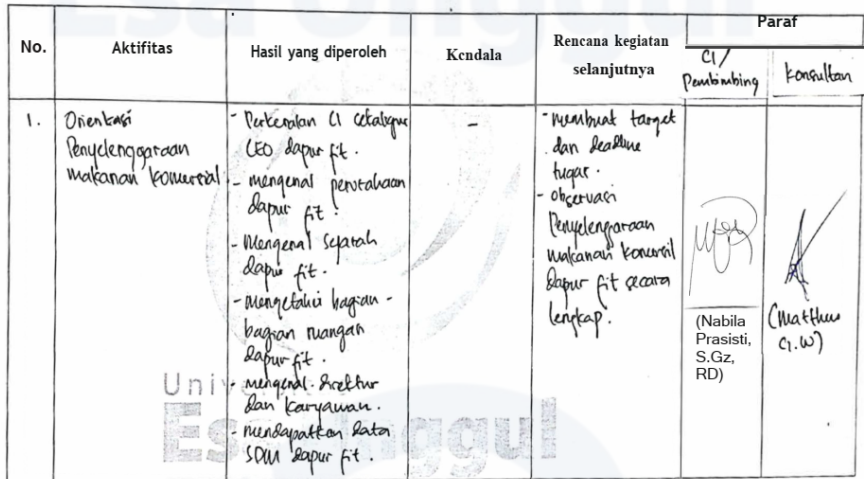 Paraf
No.
Aktifitas
Hasil yang diperoleh
Kendala
Rencana kegiatan
selanjutnya
CI/
Pembimbing
Konsultan
1.
Orientasi
Penyelenggaraan
makanan komersial
- Perkenalan CI sekaligus
CEO dapur fit.
- mengenal perusahaan
dapur fit.
- Mengenal sejarah
dapur fit.
- mengetahui bagian -
bagian ruangan
dapur fit.
- mengenal direktur
dan karyawan.
- mendapatkan data
SDM dapur fit.
-
- membuat target
dan deadline
tugas.
- observasi
Penyelenggaraan
makanan komersil
dapur fit secara
lengkap.
(Nabila
Prasisti,
S.Gz,
RD)
(Matthus
G.W)
Esa Unggul